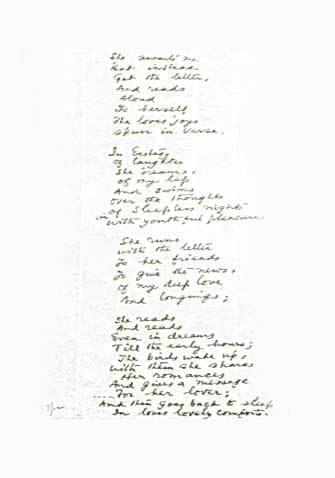 She
But instead
Get the letter,
And reads
Aloud
To herself
The loves' joys
Spun in verse.
In Ecstasy
Of laughter
She
Of my lap
And swims
Over the thoughts
Of Sleepless night
With youthful pleasure
She runs
with the letter
To her friends
To give the news,
Of my deep love
And longings;
She reads
And reads
Even in dreams
Till the early hours;
The birds wake up,
with them she shares
Her romances
And gives a message
For her lover;
And then goes back to sleep
In loves lovely comforts.